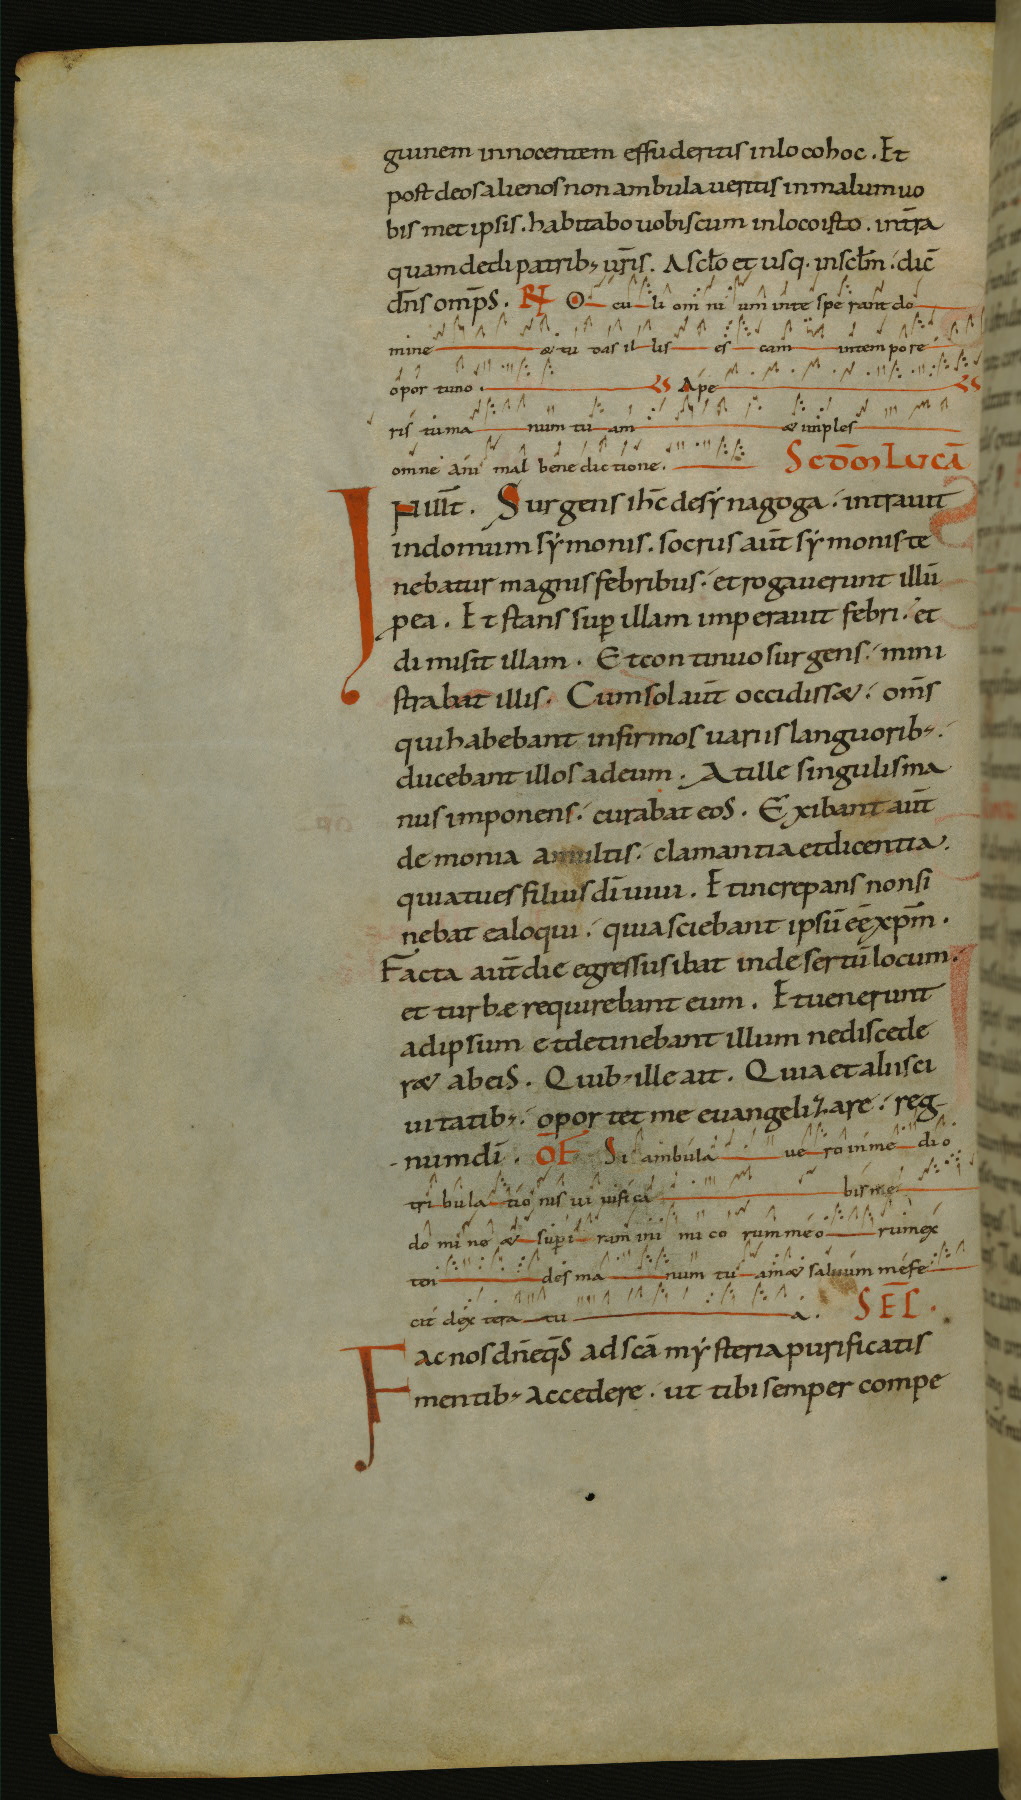 guinem innocentem effuderitis in loco hoc. Et
post deos alienos non ambulaueritis in malum uo
bis met ipsis. habitabo uobiscum in loco isto. in tr̄a
quam dedi patrib; ur̄is. A sclo et usq. in scl̄m. dic̄
dn̄s omp̄s. R̄ Oculi omnium in te sperant do
mine & tu das illis escam in tempore
oportuno. Ape
ris tu manum tuam & imples
omne animal benedictione. Scd̄m Lucā
IN ill̄t. Surgens ih̄c de synagoga. intrauit
in domum symonis. socrus aūt symonis te
nebatur magnis febribus. et rogauerunt illū
p ea. Et stans sup illam imperauit febri. et
dimisit illam. Et continuo surgens. mini
strabat illis. Cum sol aūt occidiss&. om̄s
qui habebant infirmos uariis languorib;.
ducebant illos ad eum. At ille singulis ma
nus imponens. curabat eos. Exibant aūt
demonia a multis. clamantia et dicentia.
quia tu es filius dī uiui. Et increpans non si
nebat ea loqui. quia sciebant ipsū eē xp̄m.
Facta aūt die egressus ibat in desertū locum.
et turbæ requirebant eum. Et uenerunt
ad ipsum et detinebant illum ne discede
r& ab eis. Quib; ille ait. Quia et aliis ci
uitatib;. oportet me euangelizare. reg
num dī. OF Si ambula uero in me dio
tribulationis uiuifica bis me
domine & sup iram inimicorum meorum ex
ten des manum tuam & saluum me fe
cit dextera tua. SEC.
Fac nos dn̄e qs̄ ad scā mysteria purificatis
mentib; accedere. ut tibi semper compe